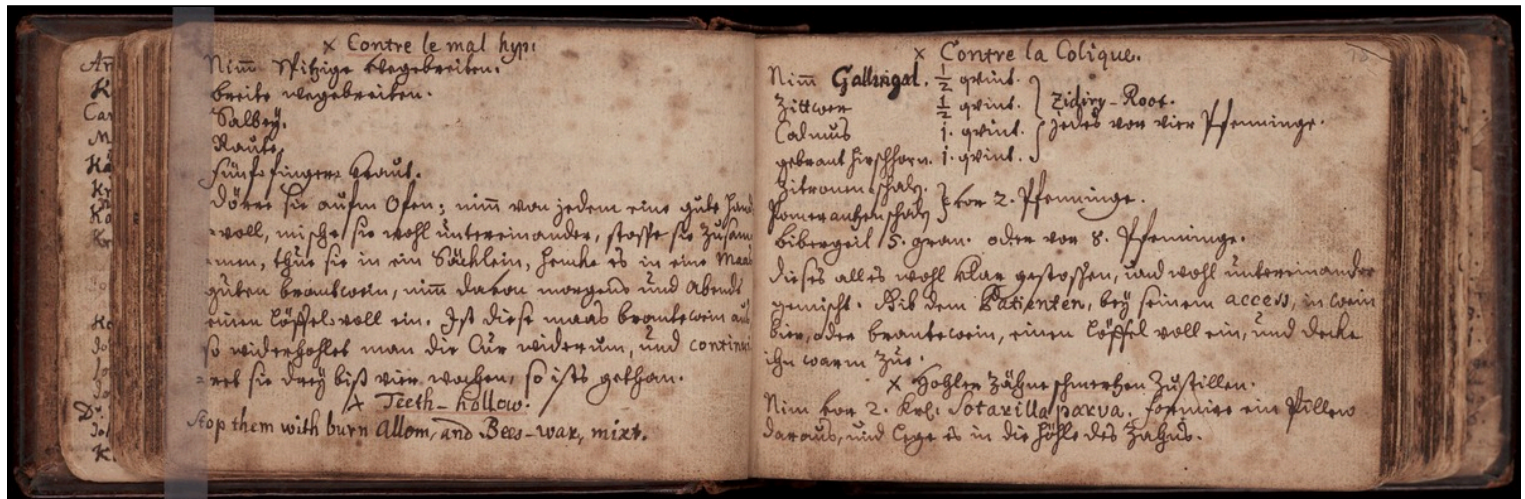 × Contre le mal hyp:
Nim̄ Spitzige wegebreiten.
breite wegebreiten.
Salbey.
Raute.
fünffingers Kraut.
dörre sie aufm Ofen; nim̄ von jedem eine gute Hand
-voll, mische sie wohl untereinander, stosse sie zusam
-men, thue sie in ein Säcklein, hencke es in eine Maas
guten brantwein, nim̄ davon morgens und Abends
einen Löffel-voll ein. Ist diese maas brantewein aus
so widerhohlet man die Cur widerum, und continui
-ret sie drey biß vier wochen, so ists gethan.
× Teeth-hollow.
Stop them with burn Allom, and Bees-wax, mixt.
An
K
Car
M
× Contre la Colique.
Nim̄ Gallingal. ½ qvint.
Zittwer ½ qvint. Zidiry-Root.
Calmus 1. qvint. jedes vor vier Pfenninge.
gebrant Hirschhorn. 1. qvint.
Zitronenschalz.
Pomerantzenschalz vor 2. Pfenninge.
bibergeil 15. gran. oder vor 8. Pfenninge.
dieses alles wohl klar gestossen, und wohl untereinander
gemischt. Gib dem Patienten, bey seinem access, in wein
bier, oder brantewein, einen Löffel voll ein, und decke
ihn warm zue.
× Hohler Zähne schmertzen Zustillen.
Nim vor 2. parva. formire ein Pillen
daraus, und lege es in die Höhle des Zahns.